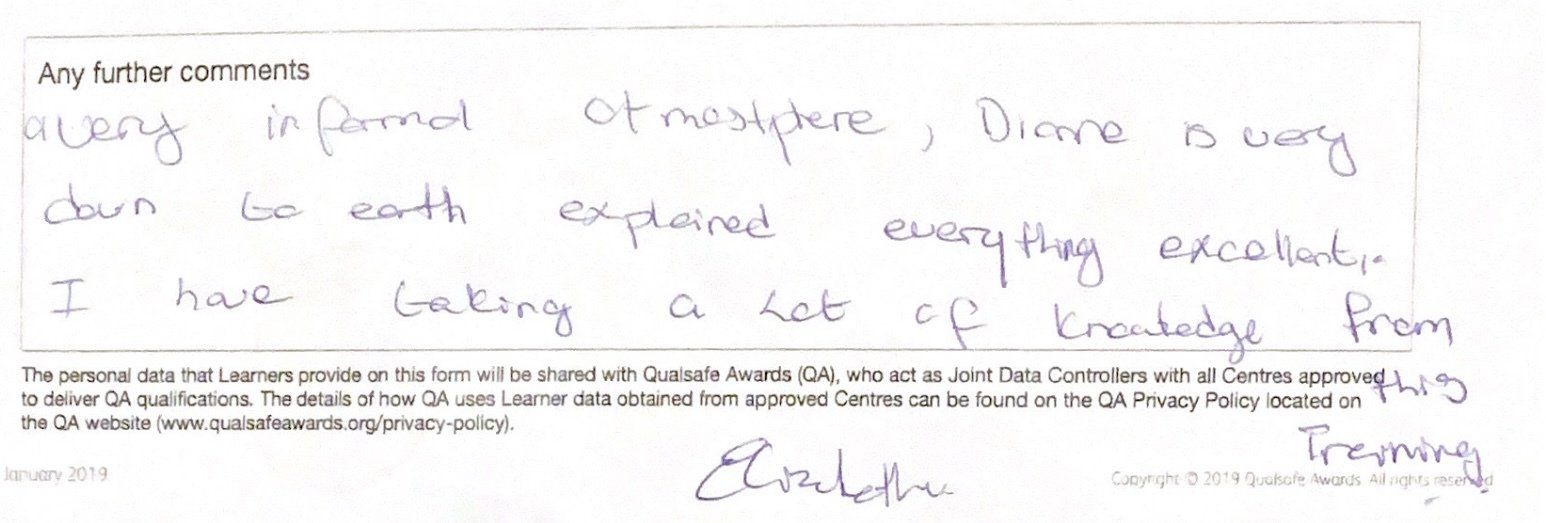 Any further comments
a very informal atmostphere, Diane is very
down to earth explained everything excellent,.
I have taking a lot of knowledge from
this
Training
The personal data that Learners provide on this form will be shared with Qualsafe Awards (QA), who act as Joint Data Controllers with all Centres approved
to deliver QA qualifications. The details of how QA uses Learner data obtained from approved Centres can be found on the QA Privacy Policy located on
the QA website (www.qualsafeawards.org/privacy-policy).
January 2019
Copyright © 2019 Qualsafe Awards. All rights reserved